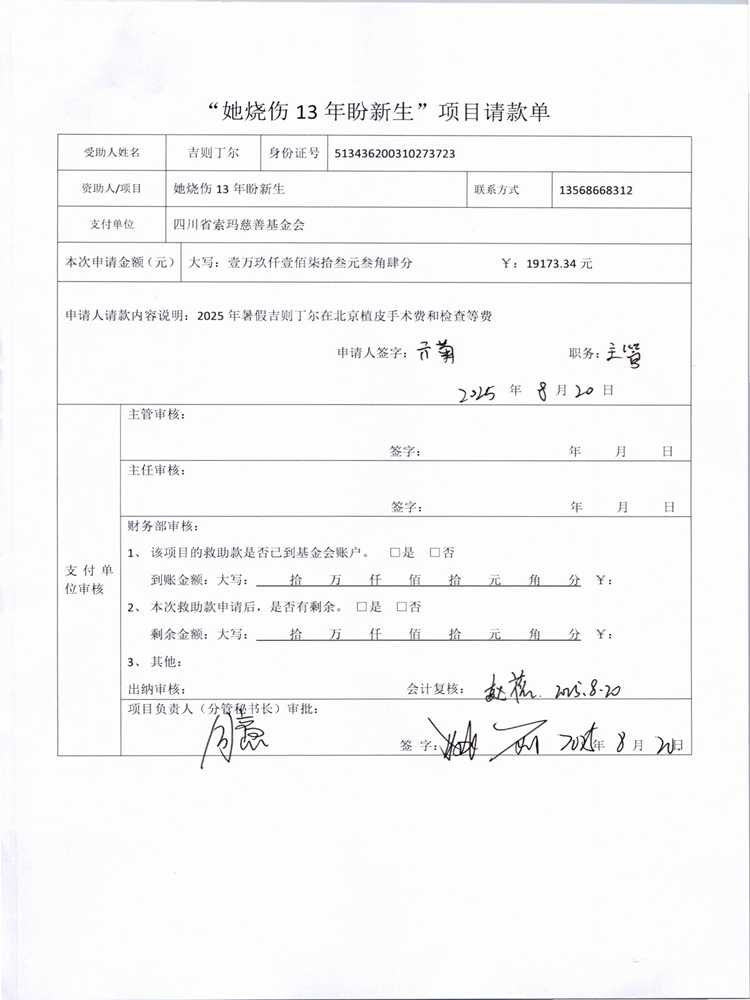 “她烧伤 13 年盼新生”项目请款单
受助人姓名 吉则丁尔 身份证号 513436200310273723
资助人/项目 她烧伤 13 年盼新生 联系方式 13568668312
支付单位 四川省索玛慈善基金会
本次申请金额（元） 大写：壹万玖仟壹佰柒拾叁元叁角肆分 ￥：19173.34 元
申请人请款内容说明：2025 年暑假吉则丁尔在北京植皮手术费和检查等费
申请人签字： 职务：主管
2025 年 8 月 20 日
主管审核：
签字： 年 月 日
主任审核：
签字： 年 月 日
财务部审核：
1、 该项目的救助款是否已到基金会账户。 □是 □否
到账金额：大写： 拾 万 仟 佰 拾 元 角 分 ￥：
2、 本次救助款申请后，是否有剩余。 □是 □否
剩余金额：大写： 拾 万 仟 佰 拾 元 角 分 ￥：
3、 其他：
出纳审核： 会计复核： 2025.8.20
支 付 单
位审核
项目负责人（分管秘书长）审批：
签 字： 2025年 8 月 20日